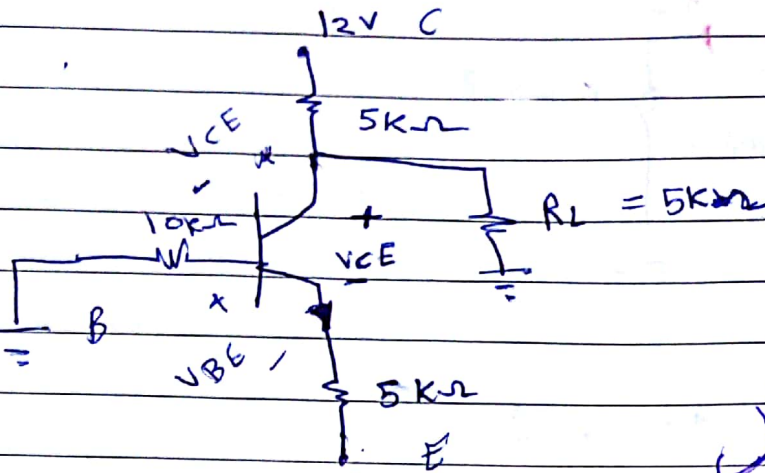 12V C
5KΩ
VCE
10KΩ
+
RL = 5KΩ
VCE
-
B
VBE
5KΩ
E